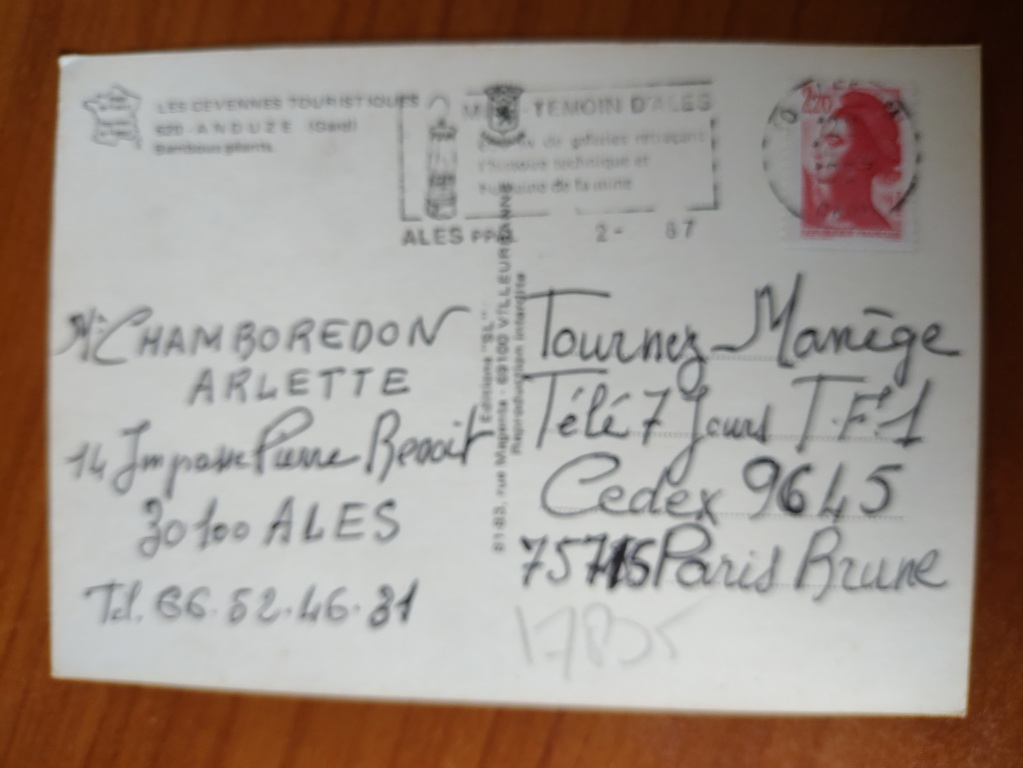 LES CEVENNES TOURISTIQUES
620 - ANDUZE (Gard)
Bambous géants
TEMOIN D'ALES
de galeries retraçant
l'histoire technique et
humaine de la mine
ALES PPAL
2 - 87
2,20
Editions "SL"
81-83, rue Magenta - 69100 VILLEURBANNE
Reproduction interdite
CHAMBOREDON
ARLETTE
14 Impasse Pierre Benoit
30100 ALES
Tel. 66.52.46.31
Tournez Manège
Télé 7 Jours T.F.1
Cedex 9645
75715 Paris Brune
17835